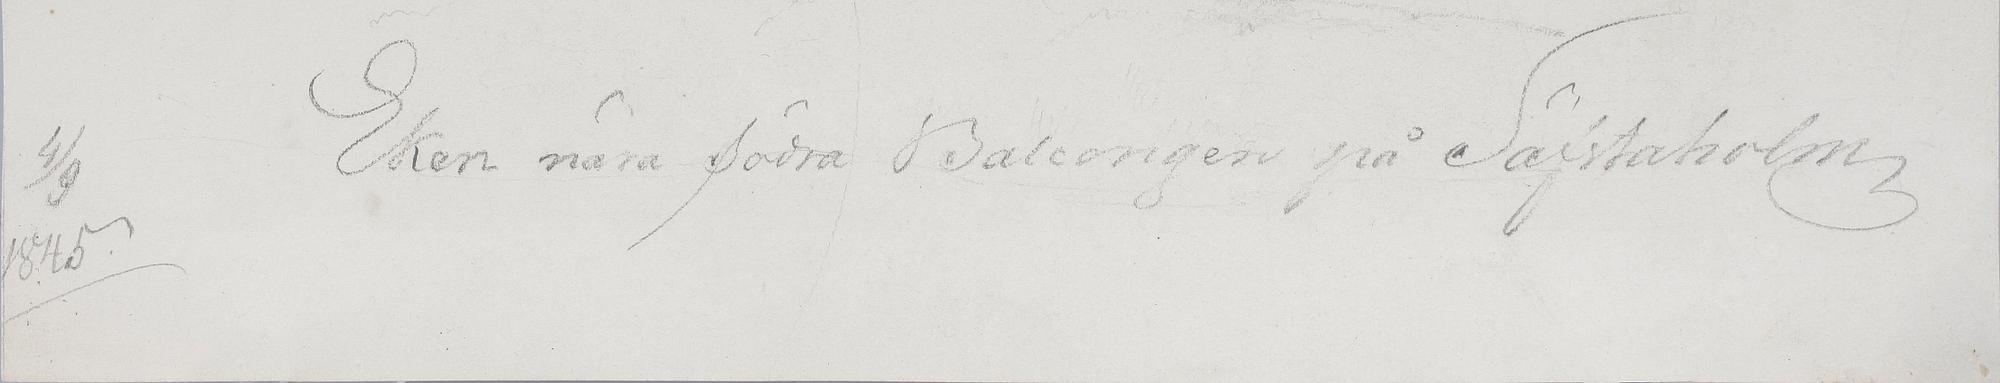 Eken nära södra Balcongen på Säfstaholm
4/9
1845.